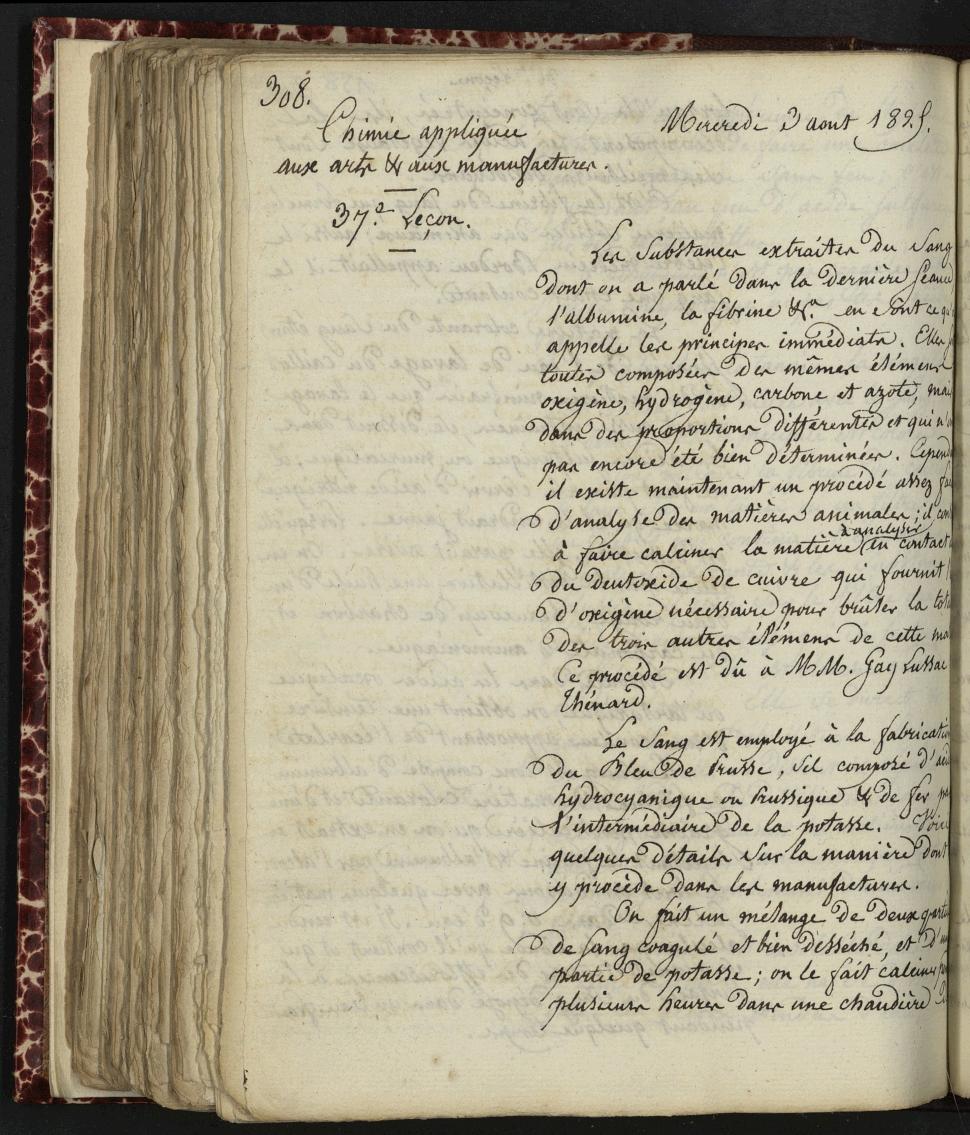 308.
Chimie appliquée
aux arts & aux manufactures.
Mercredi 3 aout 1825.
37.e Leçon.
Les Substances extraites du Sang
dont on a parlé dans la dernière
l'albumine, la fibrine &.a en sont ce
appelle les principes immédiats. Elles
toutes composées des mêmes élémens
oxigène, hydrogène, carbone et azote, mais
dans des proportions différentes et qui
pas encore été bien déterminées.
il existe maintenant un procédé assez
d'analyse des matières animales; il
à analyser
à faire calciner la matière en contact
du deutoxide de cuivre qui fournit
d'oxigène nécessaire pour brûler la
des trois autres élémens de cette
Ce procédé est dû à MM. Gay Lussac
Thénard.
Le Sang est employé à la
du Bleu de Prusse, Sel composé
hydrocyanique ou Prussique & de fer
l'intermédiaire de la potasse.
quelques détails sur la manière dont
y procède dans les manufactures.
On fait un mélange de deux
de Sang coagulé et bien desséché, et
partie de potasse; on le fait calciner
plusieurs heures dans une chaudière